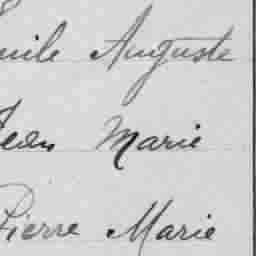 Emile Auguste
Jean Marie
Pierre Marie